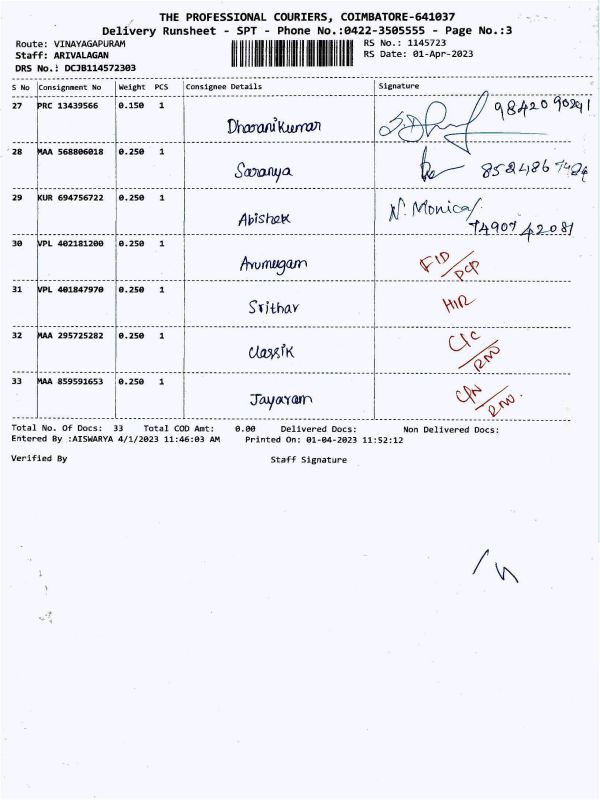 THE PROFESSIONAL COURIERS, COIMBATORE-641037
Delivery Runsheet - SPT - Phone No.:0422-3505555 - Page No.:3
Route: VINAYAGAPURAM RS No.: 1145723
Staff: ARIVALAGAN RS Date: 01-Apr-2023
DRS No.: DCJB114572303
S No Consignment No Weight PCS Consignee Details Signature
27 PRC 13439566 0.150 1
Dharanikumar
28 MAA 568806018 0.250 1
Saranya
29 KUR 694756722 0.250 1 N. Monica
Abishek 7490742081
30 VPL 402181200 0.250 1
Arumugam FID/PCP
31 VPL 401847970 0.250 1
Srithar HIR
32 MAA 295725282 0.250 1
Classik C/C/RNO
33 MAA 859591653 0.250 1
Jayaram C/N/RNO.
Total No. Of Docs: 33 Total COD Amt: 0.00 Delivered Docs: Non Delivered Docs:
Entered By :AISWARYA 4/1/2023 11:46:03 AM Printed On: 01-04-2023 11:52:12
Verified By Staff Signature